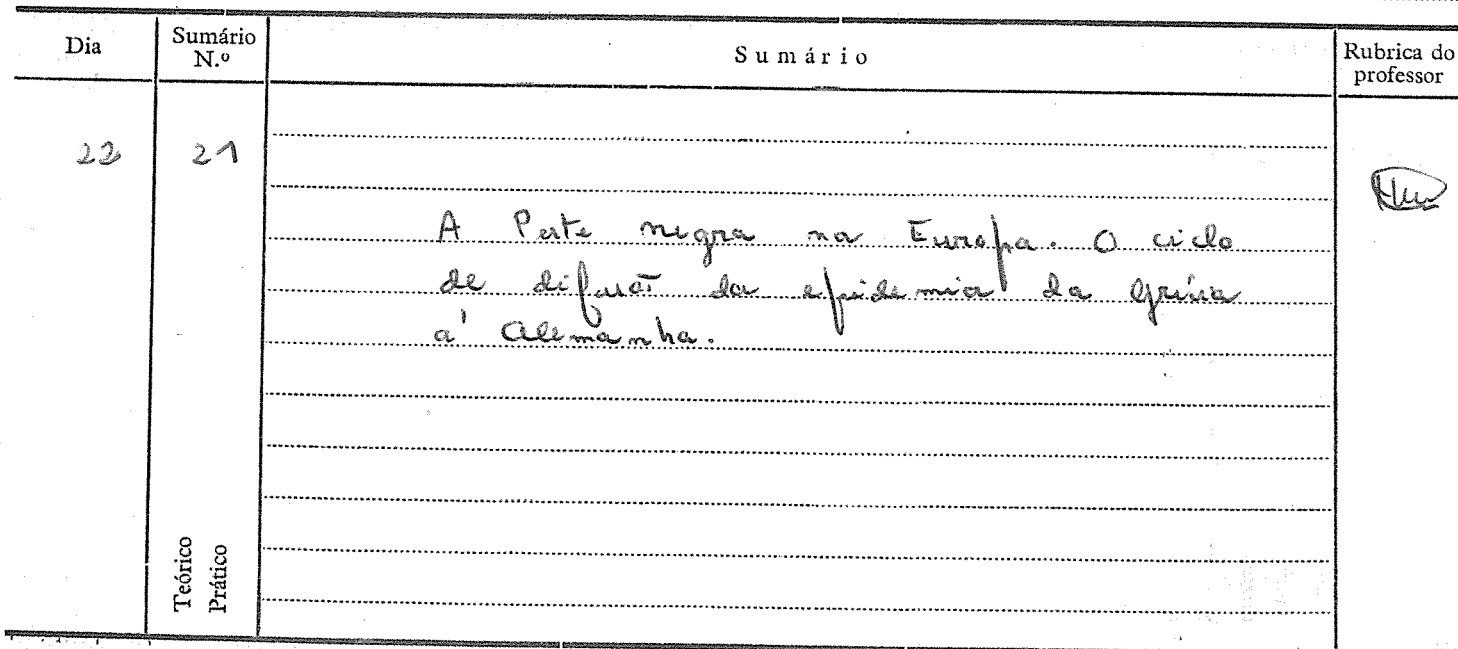 Dia
Sumário N.º
Sumário
Rubrica do professor
22
21
A Peste negra na Europa. O ciclo
de difusão da epidemia da Grécia
à Alemanha.
Teórico
Prático